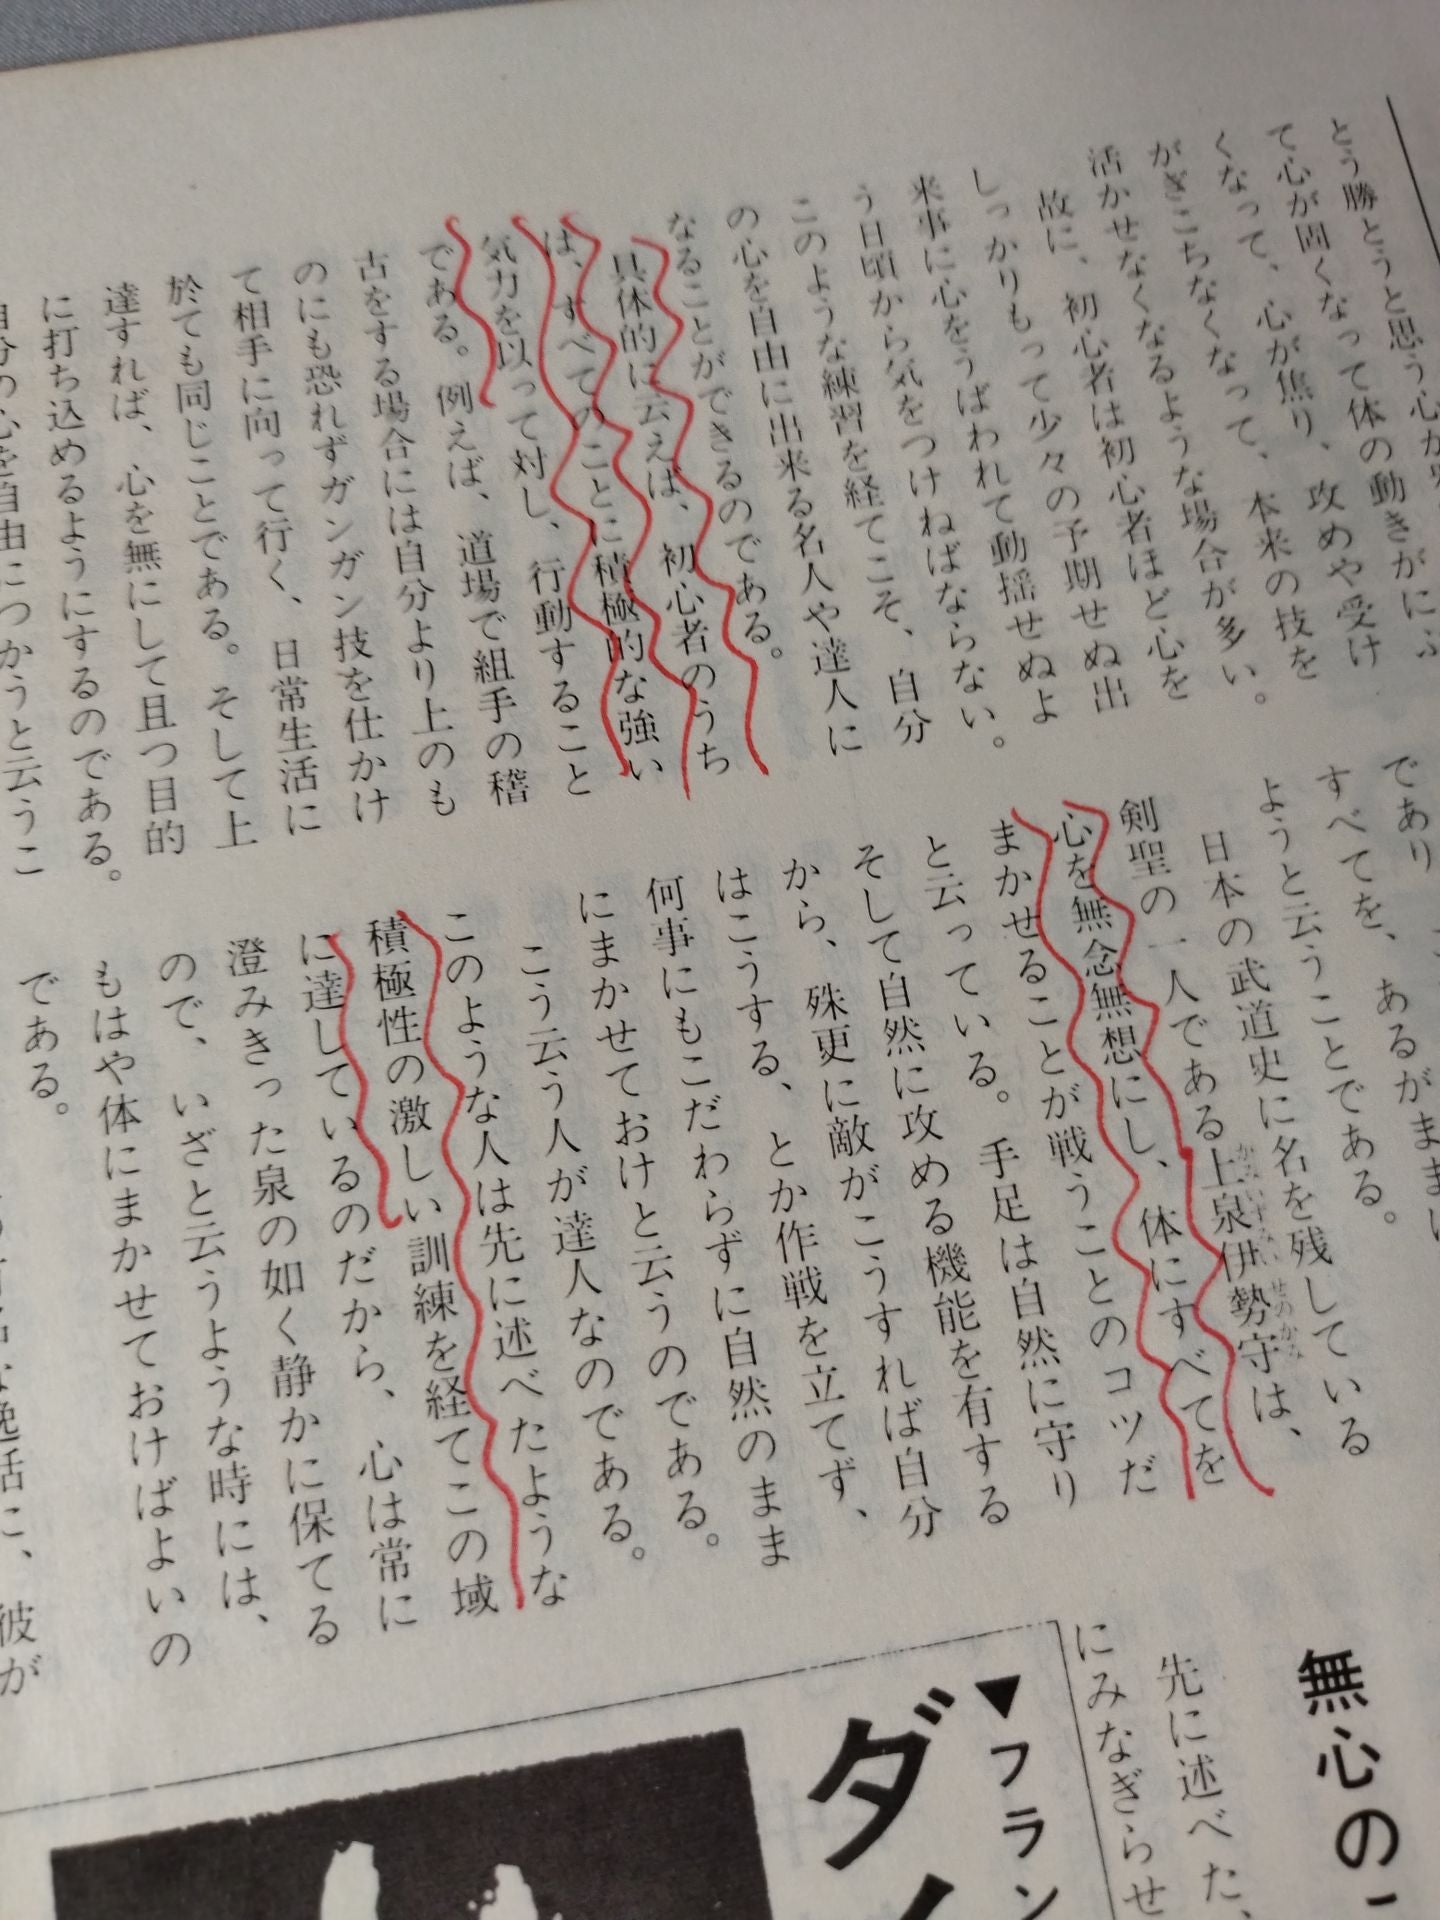 とう勝とうと思う心が
て心が固くなって体の動きがにぶ
くなって、心が焦り、攻めや受け
がぎこちなくなって、本来の技を
活かせなくなるような場合が多い。
故に、初心者は初心者ほど心を
しっかりもって少々の予期せぬ出
来事に心をうばわれて動揺せぬよ
う日頃から気をつけねばならない。
このような練習を経てこそ、自分
の心を自由に出来る名人や達人に
なることができるのである。
具体的に云えば、初心者のうち
は、すべてのことに積極的な強い
気力を以って対し、行動すること
である。例えば、道場で組手の稽
古をする場合には自分より上のも
のにも恐れずガンガン技を仕かけ
て相手に向って行く、日常生活に
於ても同じことである。そして上
達すれば、心を無にして且つ目的
に打ち込めるようにするのである。
自分の心を自由につかうと云うこ
であり
すべてを、あるがままに
ようと云うことである。
日本の武道史に名を残している
剣聖の一人である上泉伊勢守は、
かみいずみいせのかみ
心を無念無想にし、体にすべてを
まかせることが戦うことのコツだ
と云っている。手足は自然に守り
そして自然に攻める機能を有する
から、殊更に敵がこうすれば自分
はこうする、とか作戦を立てず、
何事にもこだわらずに自然のまま
にまかせておけと云うのである。
こう云う人が達人なのである。
このような人は先に述べたような
積極性の激しい訓練を経てこの域
に達しているのだから、心は常に
澄みきった泉の如く静かに保てる
ので、いざと云うような時には、
もはや体にまかせておけばよいの
である。
逸話に、彼が
無心の
先に述べた、
にみなぎらせ
▼フラン
ダ